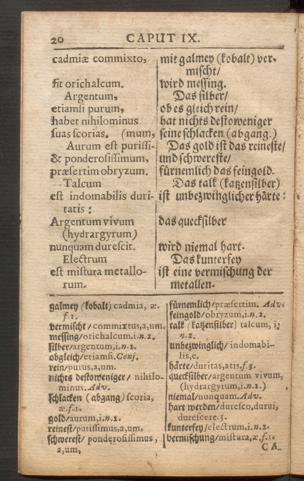 20 CAPUT IX.
cadmiæ commixto,
fit orichalcum.
Argentum,
etiamsi purum,
habet nihilominus
suas scorias. (mum,
Aurum est purissi-
& ponderosissimum,
præsertim obryzum.
Talcum
est indomabilis duri-
tatis:
Argentum vivum
(hydrargyrum)
nunquam durescit.
Electrum
est mistura metallo-
rum.
mit galmey (kobalt) ver-
mischt/
wird messing.
Das silber/
ob es gleich rein/
hat nichts destoweniger
seine schlacken (abgang.)
Das gold ist das reineste/
und schwereste/
fürnemlich das feingold.
Das talk (katzensilber)
ist unbezwinglicher härte:
das quecksilber
wird niemal hart.
Das kuntersey
ist eine vermischung der
metallen.
galmey (kobalt) cadmia, æ.
f.1.
vermischt/commixtus,a,um.
messing/orichalcum,i.n.2.
silber/argentum,i.n.2.
obgleich/etiamsi.Conj.
rein/purus,a,um.
nichts destoweniger/ nihilo-
minus.Adv.
schlacken (abgang) scoria,
æ.f.1.
gold/aurum,i.n.2.
reinest/purissimus,a,um.
schwerest/ ponderosissimus,
a,um,
fürnemlich/præsertim. Adv.
feingold/obryzum,i.n.2.
talk (katzensilber) talcum, i;
n.2.
unbezwinglich/ indomabi-
lis,e.
härte/duritas,atis,f.3.
quecksilber/argentum vivum,
(hydrargyrum,i.n.2.)
niemal/nunquam.Adv.
hart werden/duresco,durui,
durescere.3.
kuntersey/electrum.i.n.2.
vermischung/mistura,æ.f.1.
CA-